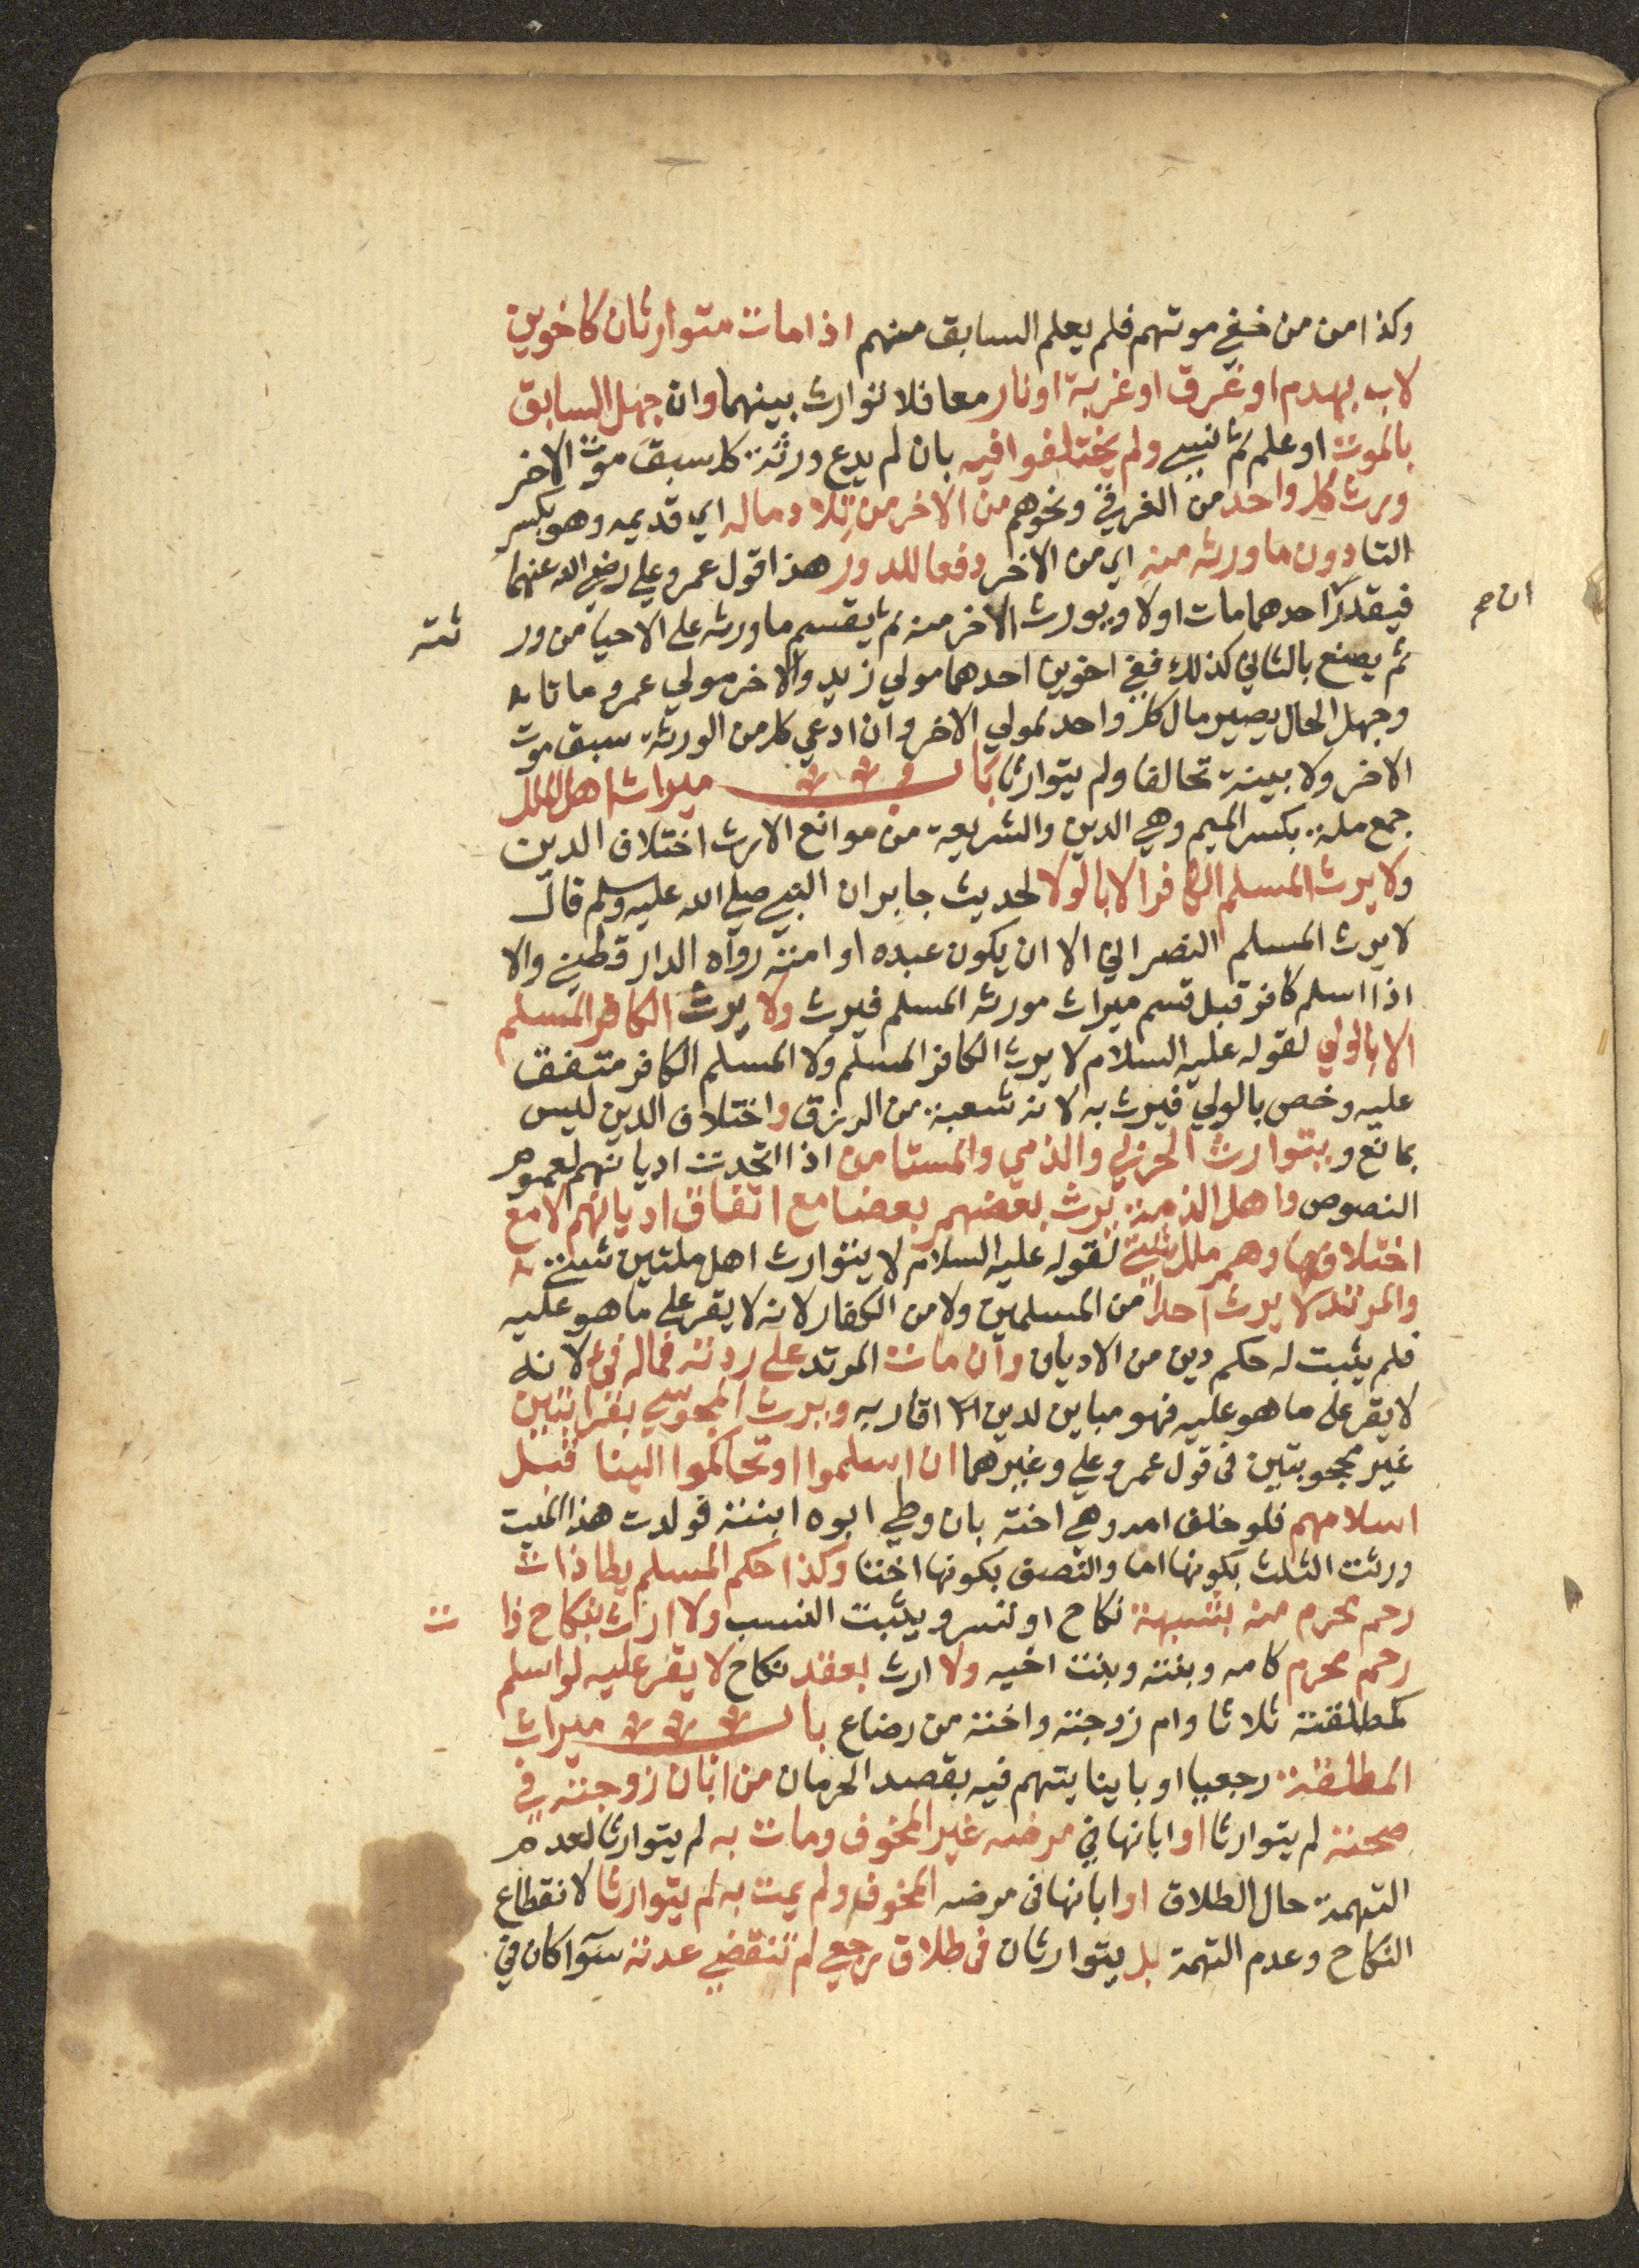 وكذا من من خفي موتهم فلم يعلم السابق منهم اذا مات متوارثان كاخوين
لاب بهدم او غرق او غربة او نار معا فلا توارث بينهما وان جهل السابق
بالموت او علم ثم نسي ولم يختلفوا فيه بان لم يدع ورثة كل سبق موت الاخر
ورث كل واحد من الغرقي ونحوهم من الاخر من تِلاد ماله اي قديمه وهو بكسر
التا دون ما ورثه منه اي من الاخر دفعا للدور هذا قول عمر وعلي رضي الله عنهما
ان م
فيقدر احدهما مات اولا ويورث الاخر منه ثم يقسم ما ورثه على الاحيا من ور ثته
ثم يصنع بالثاني كذلك ففي اخوين احدهما مولي زيد والاخر مولي عمرو ماتا
وجهل الحال يصير مال كل واحد لمولي الاخر وان ادعي كل من الورثة سبق موت
الاخر ولا بينة تحالفا ولم يتوارثا باب ميراث اهل الملل
جمع ملة بكسر الميم وهي الدين والشريعة من موانع الارث اختلاف الدين
ولا يرث المسلم الكافر الا بالولا لحديث جابر ان النبي صلي الله عليه وسلم قال
لا يرث المسلم النصراني الا ان يكون عبده او امته رواه الدارقطني والا
اذا اسلم كافر قبل قسم ميراث مورثه المسلم فيرث ولا يرث الكافر المسلم
الا بالولي لقوله عليه السلام لا يرث الكافر المسلم ولا المسلم الكافر متفق
عليه وخص بالولي فيرث به لانه شعبة من الرزق واختلاف الدين ليس
بمانع و يتوارث الحربي والذمي والمستامن اذا اتحدت اديانهم لعموم
النصوص واهل الذمة يرث بعضهم بعضا مع اتفاق اديانهم لا مع
اختلافها وهم ملل شتي لقوله عليه السلام لا يتوارث اهل ملتين شتي
والمرتد لا يرث احدا من المسلمين ولا من الكفار لانه لا يقر على ما هو عليه
فلم يثبت له حكم دين من الاديان وان مات المرتد علي ردته فماله فيء لانه
لا يقر على ما هو عليه فهو مباين لدين اقاربه ويرث المجوسي بقرابتين
غير محجوبتين في قول عمر وعلي وغيرهما ان اسلموا او تحاكموا الينا قبل
اسلامهم فلو خلف امه وهي اخته بان وطي ابوه ابنته فولدت هذا الميت
ورثت الثلث بكونها اما والنصف بكونها اختا وكذا حكم المسلم يطا ذات
رحم محرم منه بشبهة نكاح او تسر ويثبت النسب ولا ارث بنكاح ذا ت
رحم محرم كامه وبنته وبنت اخيه ولا ارث بعقد نكاح لا يقر عليه لو اسلم
كمطلقته ثلاثا وام زوجته واخته من رضاع باب ميراث
المطلقة رجعيا او باينا يتهم فيه بقصد الحرمان من ابان زوجته في
صحته لم يتوارثا او ابانها في مرضه غير المخوف ومات به لم يتوارثا لعدم
التهمة حال الطلاق او ابانها في مرضه المخوف ولم يمت به لم يتوارثا لانقطاع
النكاح وعدم التهمة بل يتوارثان في طلاق رجعي لم تنقضي عدته سوا كان في